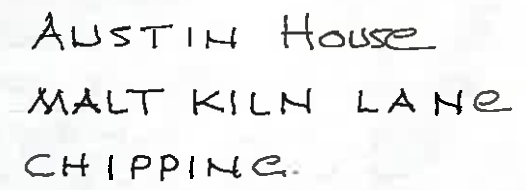 AUSTIN House
MALT KILN LANe
CHIPPING.